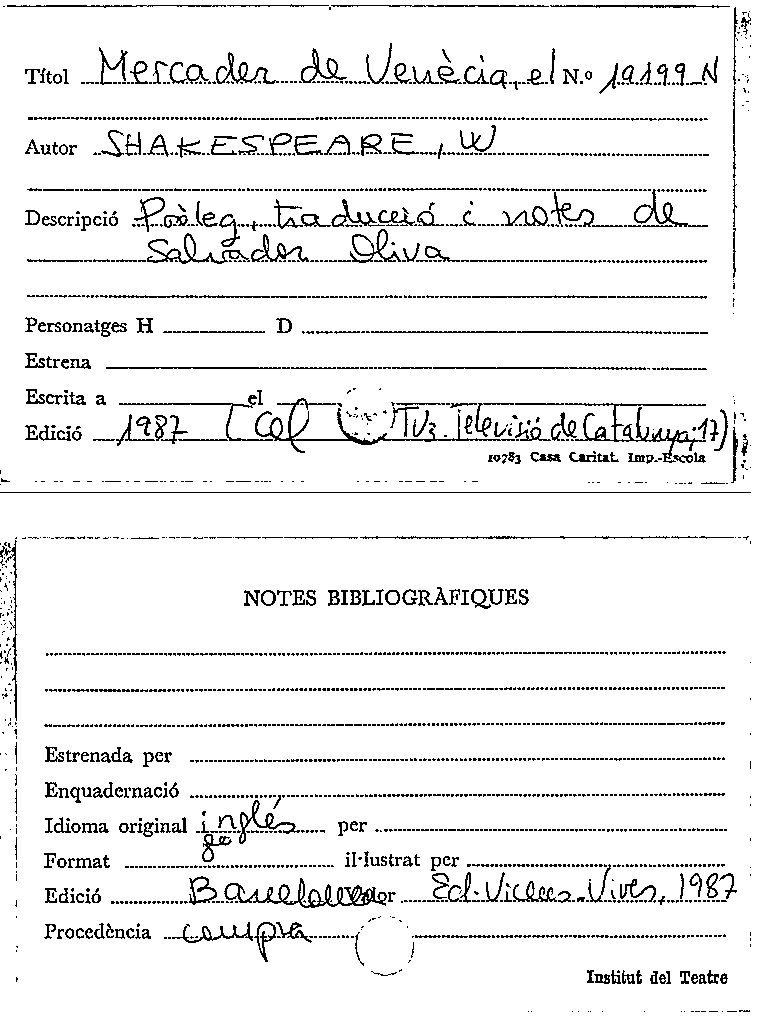 Títol Mercader de Venècia, el N.º 19199 N
Autor SHAKESPEARE, W
Descripció Pròleg, traducció i notes de
Salvador Oliva
Personatges H D
Estrena
Escrita a el
Edició 1987 (Col TV3. Televisió de Catalunya; 17)
10783 Casa Caritat. Imp.-Escola
NOTES BIBLIOGRÀFIQUES
Estrenada per
Enquadernació
Idioma original inglés per
Format 8º il·lustrat per
Edició Barcelona per Ed. Vicens-Vives, 1987
Procedència compra
Institut del Teatre